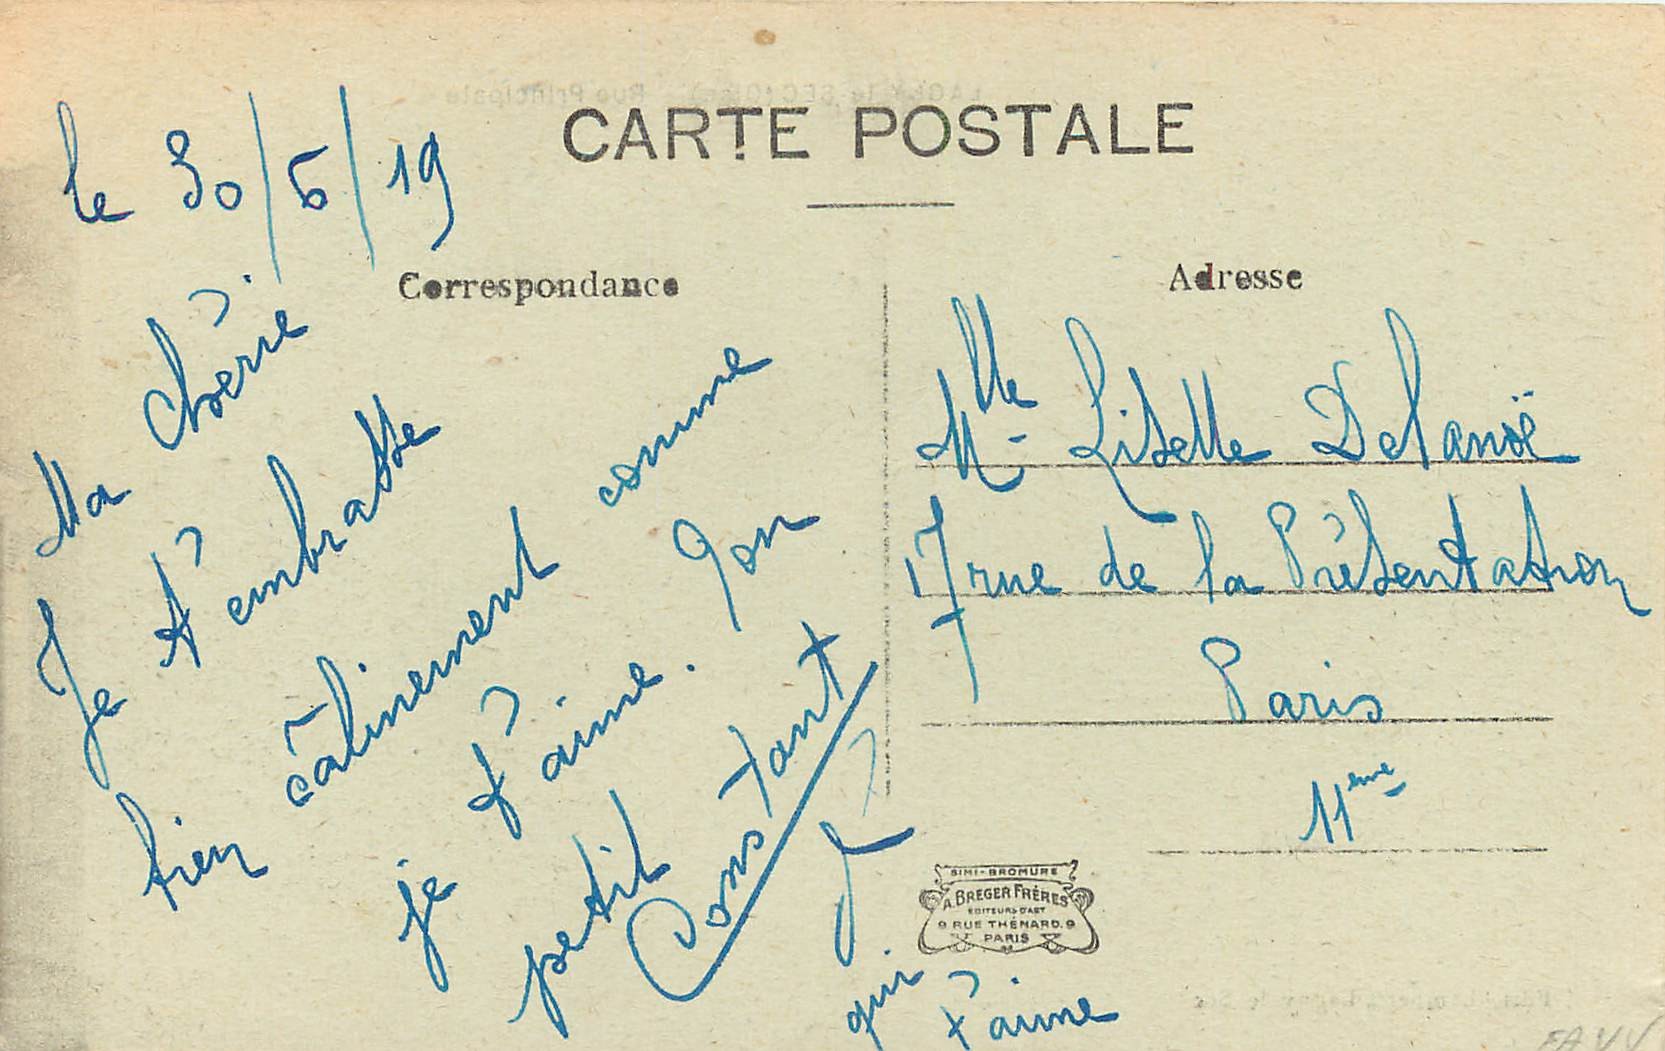 LAGNY le SEC (Oise) - Rue Principale
CARTE POSTALE
le 30/5/19
Correspondance
Ma chérie
Je t'embrasse
bien câlinement comme
je t'aime. Ton
petit Constant
J
qui t'aime
Adresse
Mlle Liselle Delanoë
17 rue de la Présentation
Paris
11eme
SIMI-BROMURE
A. BREGER FRÈRES
EDITEURS D'ART
9 RUE THÉNARD. 9
PARIS